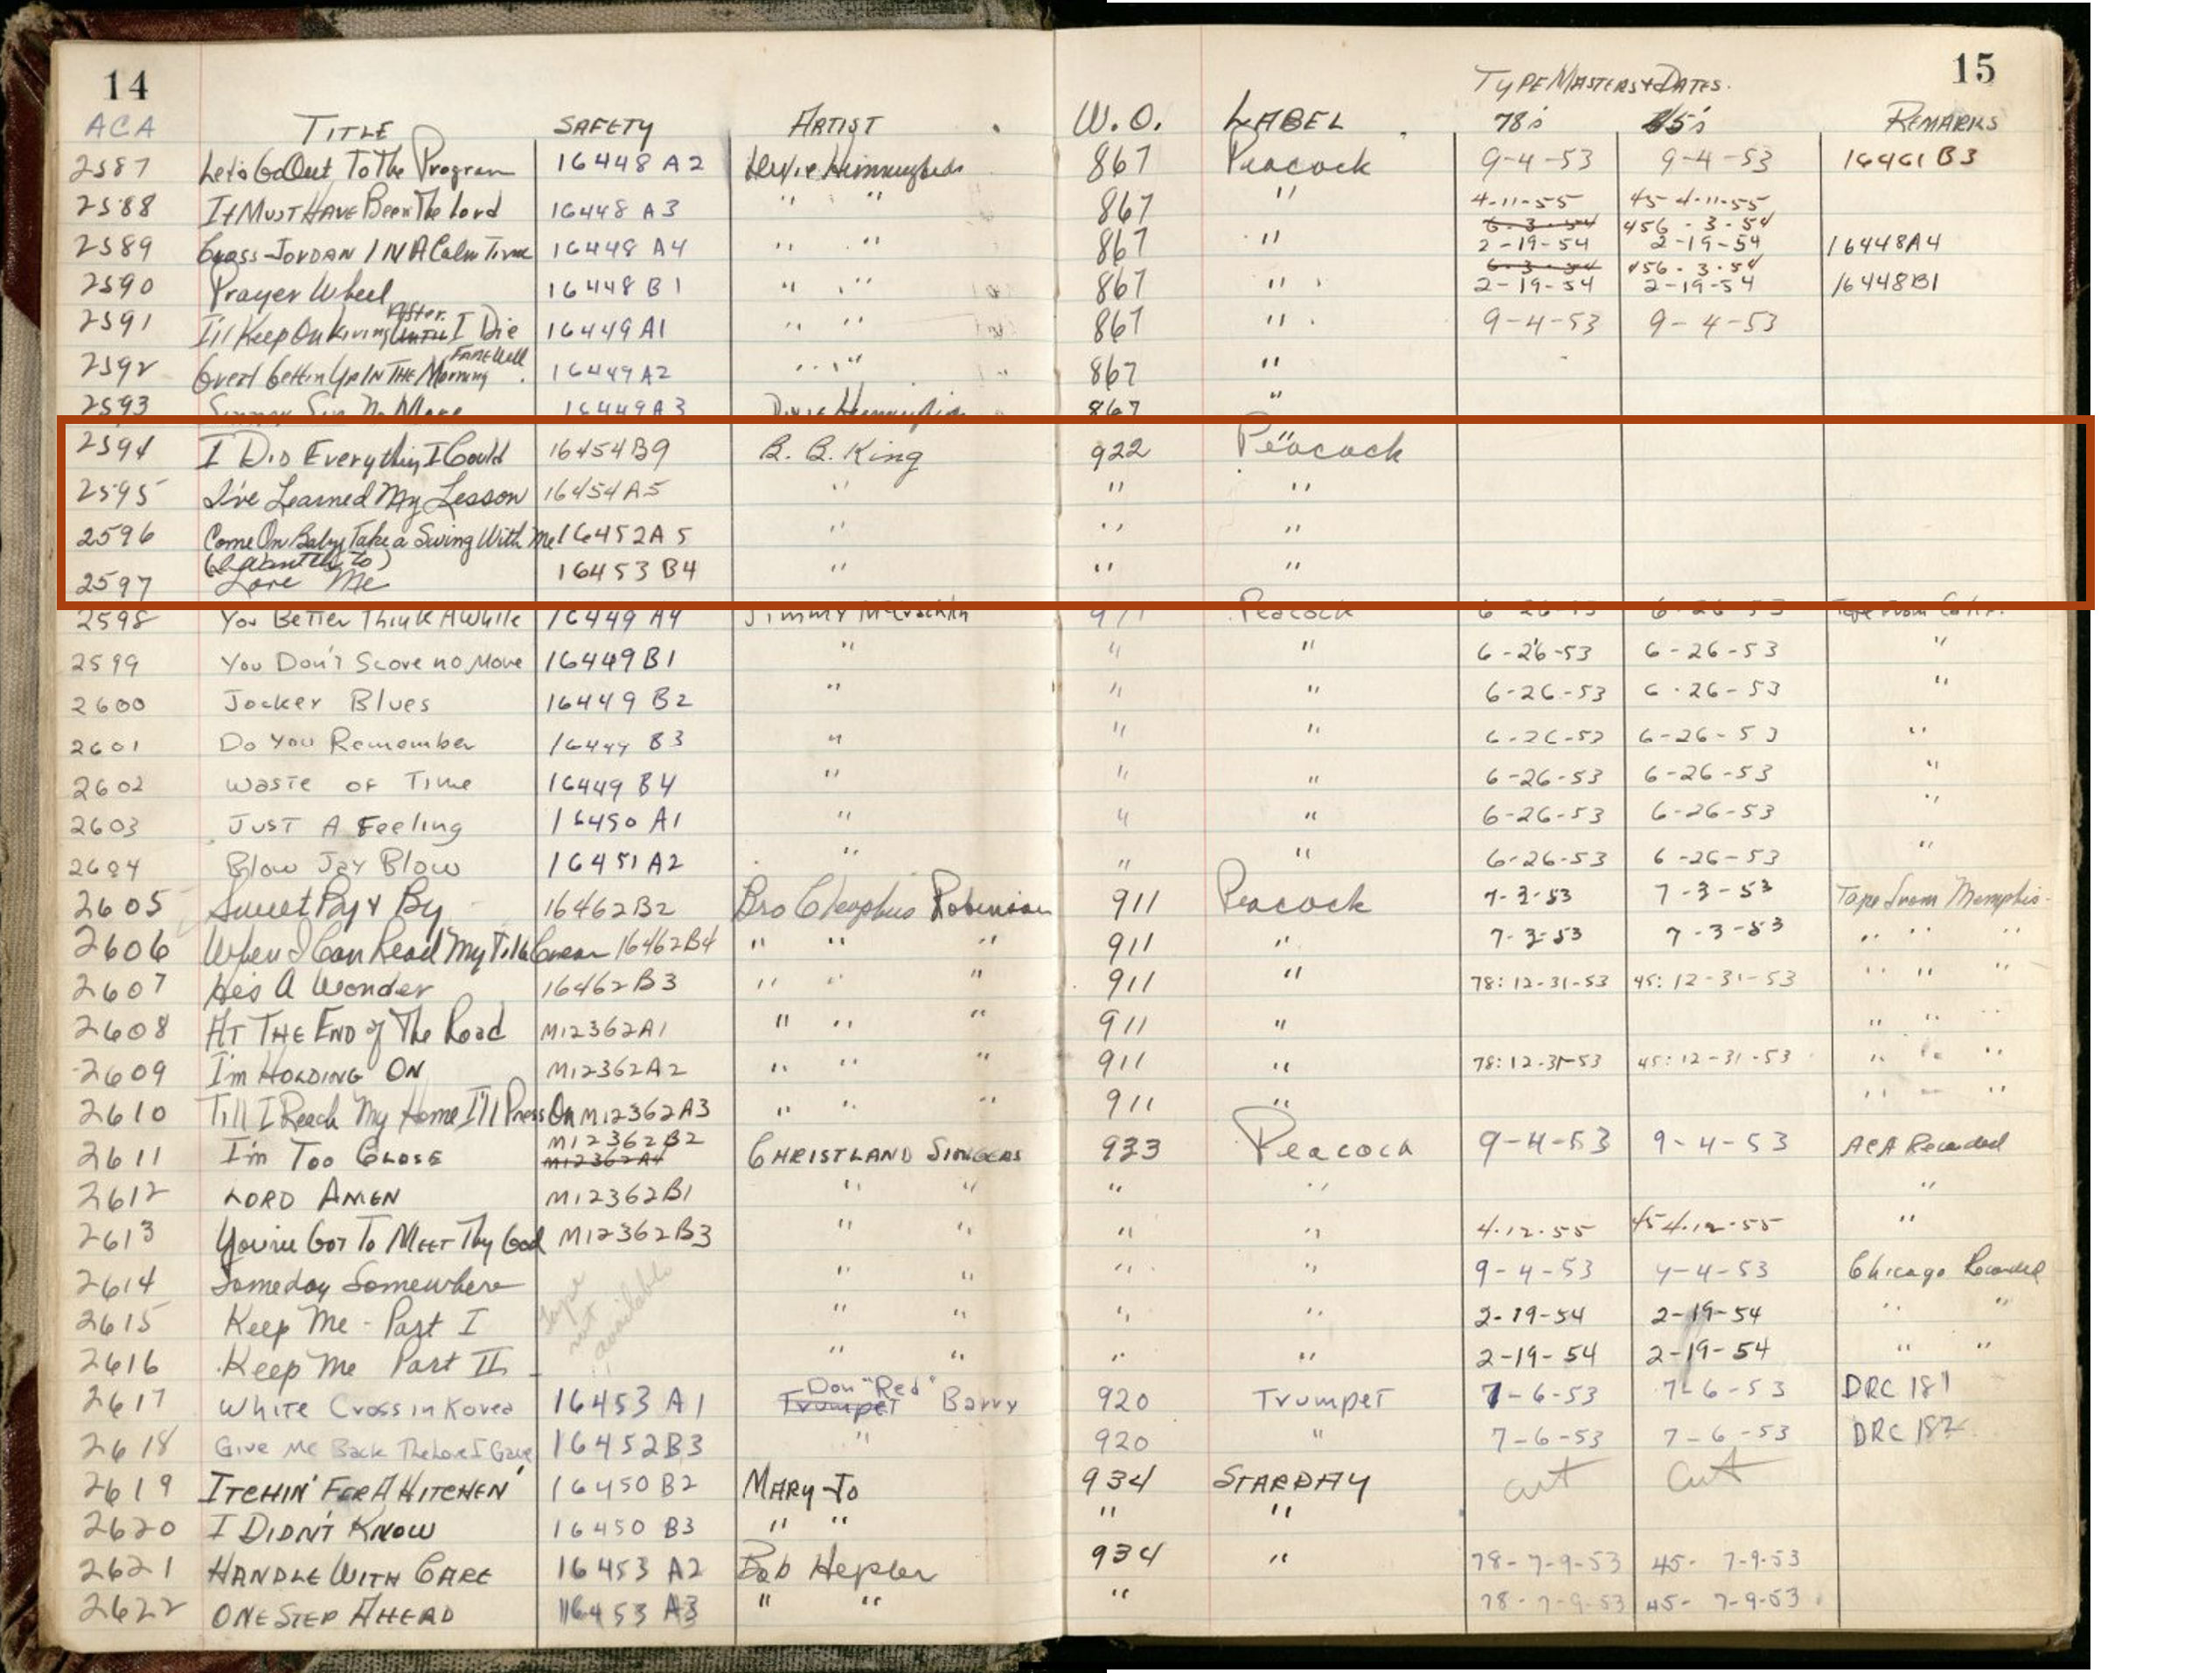 14
15
TYPE MASTERS & DATES.
ACA TITLE SAFETY ARTIST W.O. LABEL 78s 45s REMARKS
2587 Let's Go Out To The Program 16448 A2 Dixie Hummingbirds 867 Peacock 9-4-53 9-4-53 16461 B3
2588 It Must Have Been The Lord 16448 A3 " " 867 " 4-11-55 45 4-11-55
6-3-54 456-3-54
2589 Cross-Jordan IN A Calm Time 16448 A4 " " 867 " 2-19-54 2-19-54 16448A4
6-3-54 456-3-54
2590 Prayer Wheel 16448 B1 " " 867 " 2-19-54 2-19-54 16448B1
After
2591 I'll Keep On Living Until I Die 16449 A1 " " 867 " 9-4-53 9-4-53
Farewell
2592 Great Gettin Up IN THE Morning 16449 A2 " " 867 "
2593 Sinner Sin No More 16449 A3 Dixie 867 "
2594 I Did Everything I Could 16454B9 B. B. King 922 Peacock
2595 I've Learned My Lesson 16454A5 " " "
2596 Come On Baby Take a Swing With Me 16452A5 " " "
(I want to)
2597 Love Me 16453 B4 " " "
2598 You Better Think Awhile 16449 A4 Jimmy McCracklin 911 Peacock 6-26-53 6-26-53 Tape From Calif.
2599 You Don't Score no Move 16449 B1 " " " 6-26-53 6-26-53 "
2600 Jocker Blues 16449 B2 " " " 6-26-53 6-26-53 "
2601 Do You Remember 16449 B3 " " " 6-26-53 6-26-53 "
2602 Waste of Time 16449 B4 " " " 6-26-53 6-26-53 "
2603 Just A Feeling 16450 A1 " " " 6-26-53 6-26-53 "
2604 Blow Jay Blow 16451 A2 " " " 6-26-53 6-26-53 "
2605 Sweet By & By 16462B2 Bro Cleophus Robinson 911 Peacock 7-3-53 7-3-53 Tape from Memphis-
2606 When I Can Read My Title Clear 16462B4 " " " 911 " 7-3-53 7-3-53 " " "
2607 He's A Wonder 16462B3 " " " 911 " 78: 12-31-53 45: 12-31-53 " " "
2608 AT THE END of The Road M12362A1 " " " 911 " " " "
2609 I'm HOLDING ON M12362A2 " " " 911 " 78: 12-31-53 45: 12-31-53 " " "
2610 Till I Reach My Home I'll Press On M12362A3 " " " 911 " " " "
M12362B2
2611 I'm Too Close M12362A4 CHRISTLAND SINGERS 933 Peacock 9-4-53 9-4-53 ACA Recorded
2612 LORD AMEN M12362B1 " " " " "
2613 You've Got To Meet Thy God M12362B3 " " " " 4-12-55 45 4-12-55 "
2614 Someday Somewhere " " " " 9-4-53 9-4-53 Chicago Recorded
2615 Keep Me - Part I Tape not available " " " " 2-19-54 2-19-54 " "
2616 Keep Me Part II " " " " 2-19-54 2-19-54 " "
Don "Red"
2617 White Cross in Korea 16453 A1 Trumpet Barry 920 Trumpet 7-6-53 7-6-53 DRC 181
2618 Give Me Back The Love I Gave 16452B3 " 920 " 7-6-53 7-6-53 DRC 182
2619 ITCHIN' FER A HITCHEN' 16450 B2 MARY-Jo 934 STARDAY cut cut
2620 I DIDN'T KNOW 16450 B3 " " " "
2621 HANDLE WITH CARE 16453 A2 Bob Hepler 934 " 78-7-9-53 45- 7-9-53
2622 ONE STEP AHEAD 16453 A3 " " " 78-7-9-53 45- 7-9-53